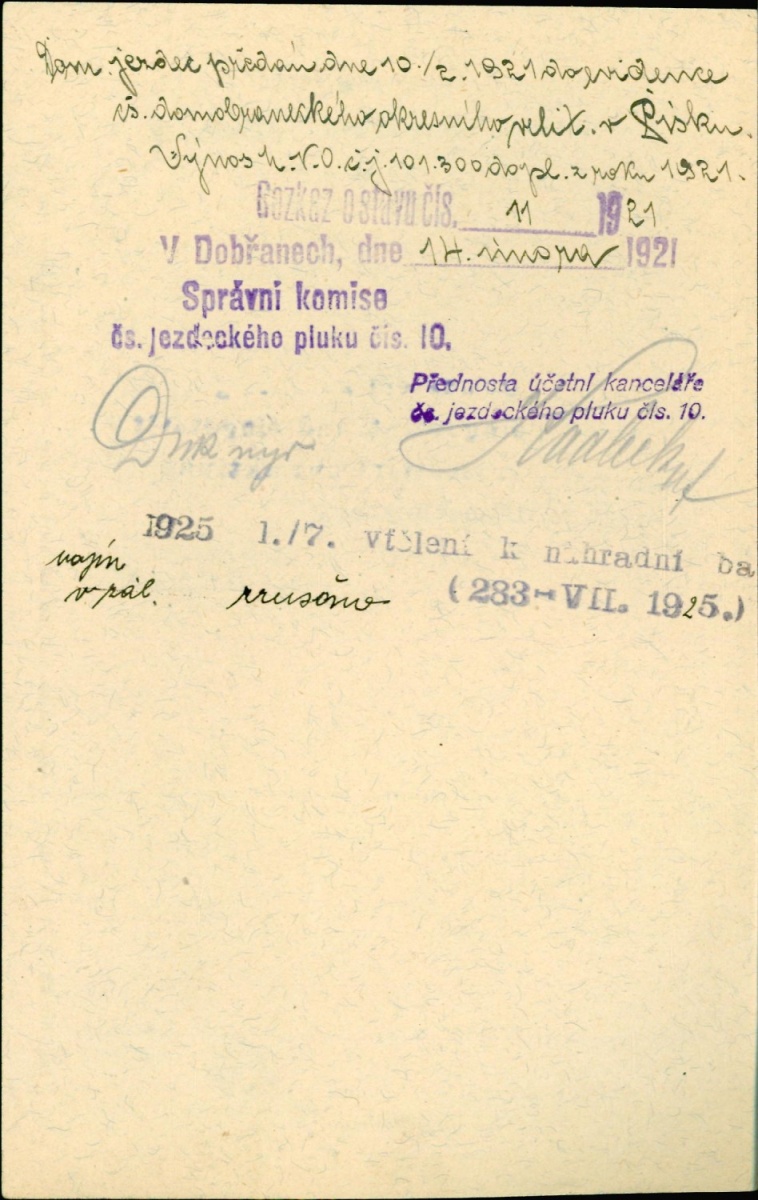 Dom. jezdec předán dne 10./2. 1921 do evidence
čs. domobraneckého okresního velit. v Písku.
Výnos h. V. O. č. j. 101.300 dopl. z roku 1921.
Rozkaz o stavu čís. 11 1921
V Dobřanech, dne 14. února 1921
Správní komise
čs. jezdeckého pluku čís. 10.
Přednosta účetní kanceláře
čs. jezdeckého pluku čís. 10.
1925 1./7. vtělení k náhradní ba
vojín
v zál. zrušeno
(283-VII. 1925.)